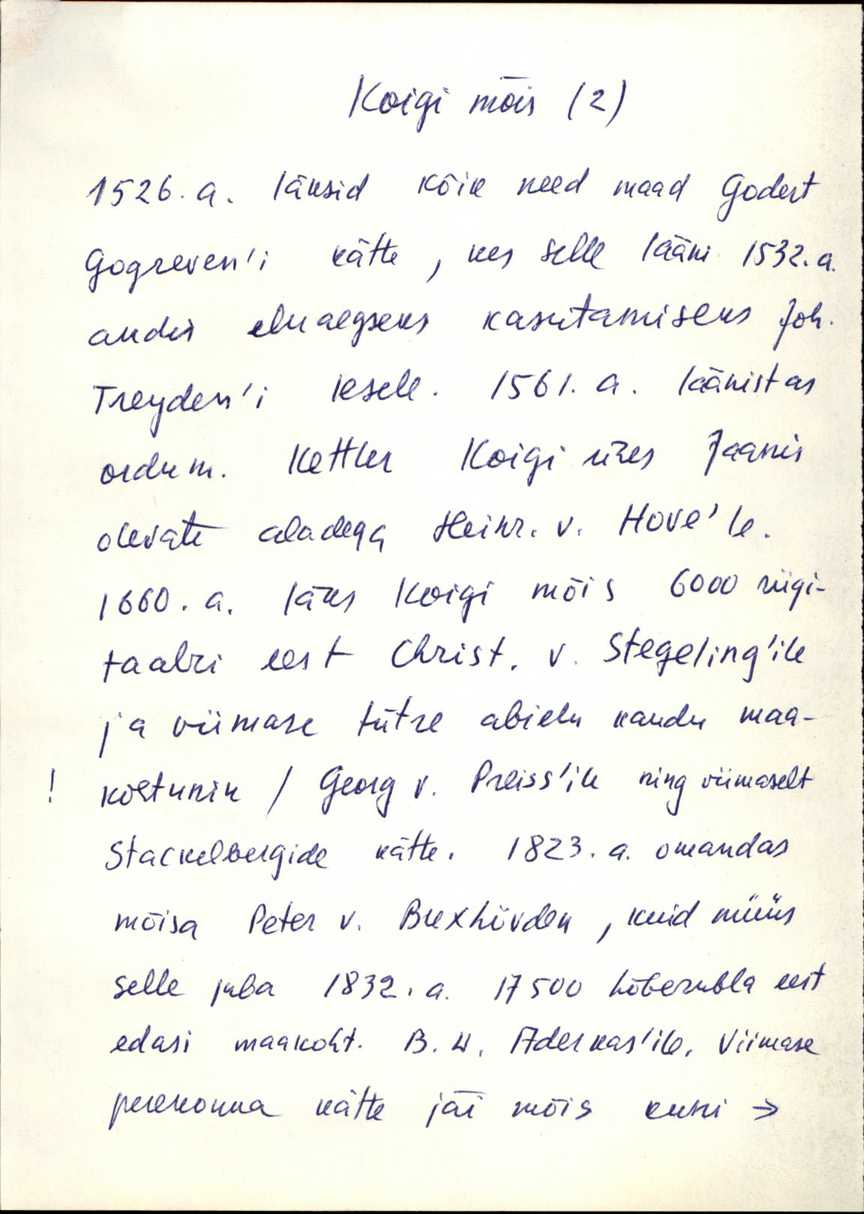 Koigi mõis (2)
1526. a. läksid kõik need maad Godert
Gogreven'i kätte, kes selle lääni 1532. a.
andis eluaegseks kasutamiseks Joh.
Treyden'i lesele. 1561. a. läänistas
ordum. Kettler Koigi ühes Jaanis
olevate aladega Heinr. v. Hove'le.
1660. a. läks Koigi mõis 6000 riigi-
taalri eest Christ. v. Stegeling'ile
ja viimase tütre abielu kaudu maa-
! kohtunik / Georg v. Preiss'ile ning viimaselt
Stackelbergide kätte. 1823. a. omandas
mõisa Peter v. Buxhövden, kuid müüs
selle juba 1832. a. 17500 hõberubla eest
edasi maakoht. B. W. Aderkas'ile. Viimase
perekonna kätte jäi mõis kuni →